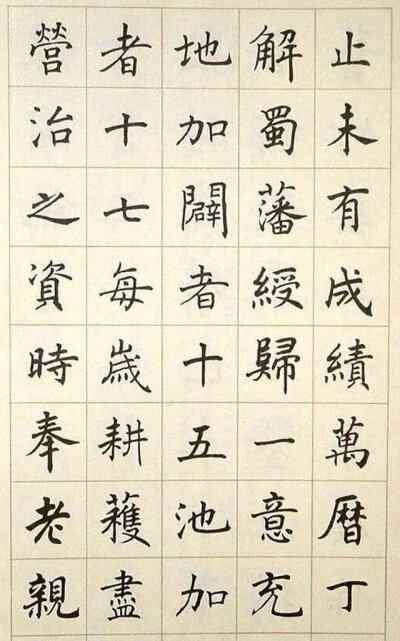 止未有成績萬曆丁
解蜀藩綬歸一意充
地加闢者十五池加
者十七每歲耕穫盡
營治之資時奉老親